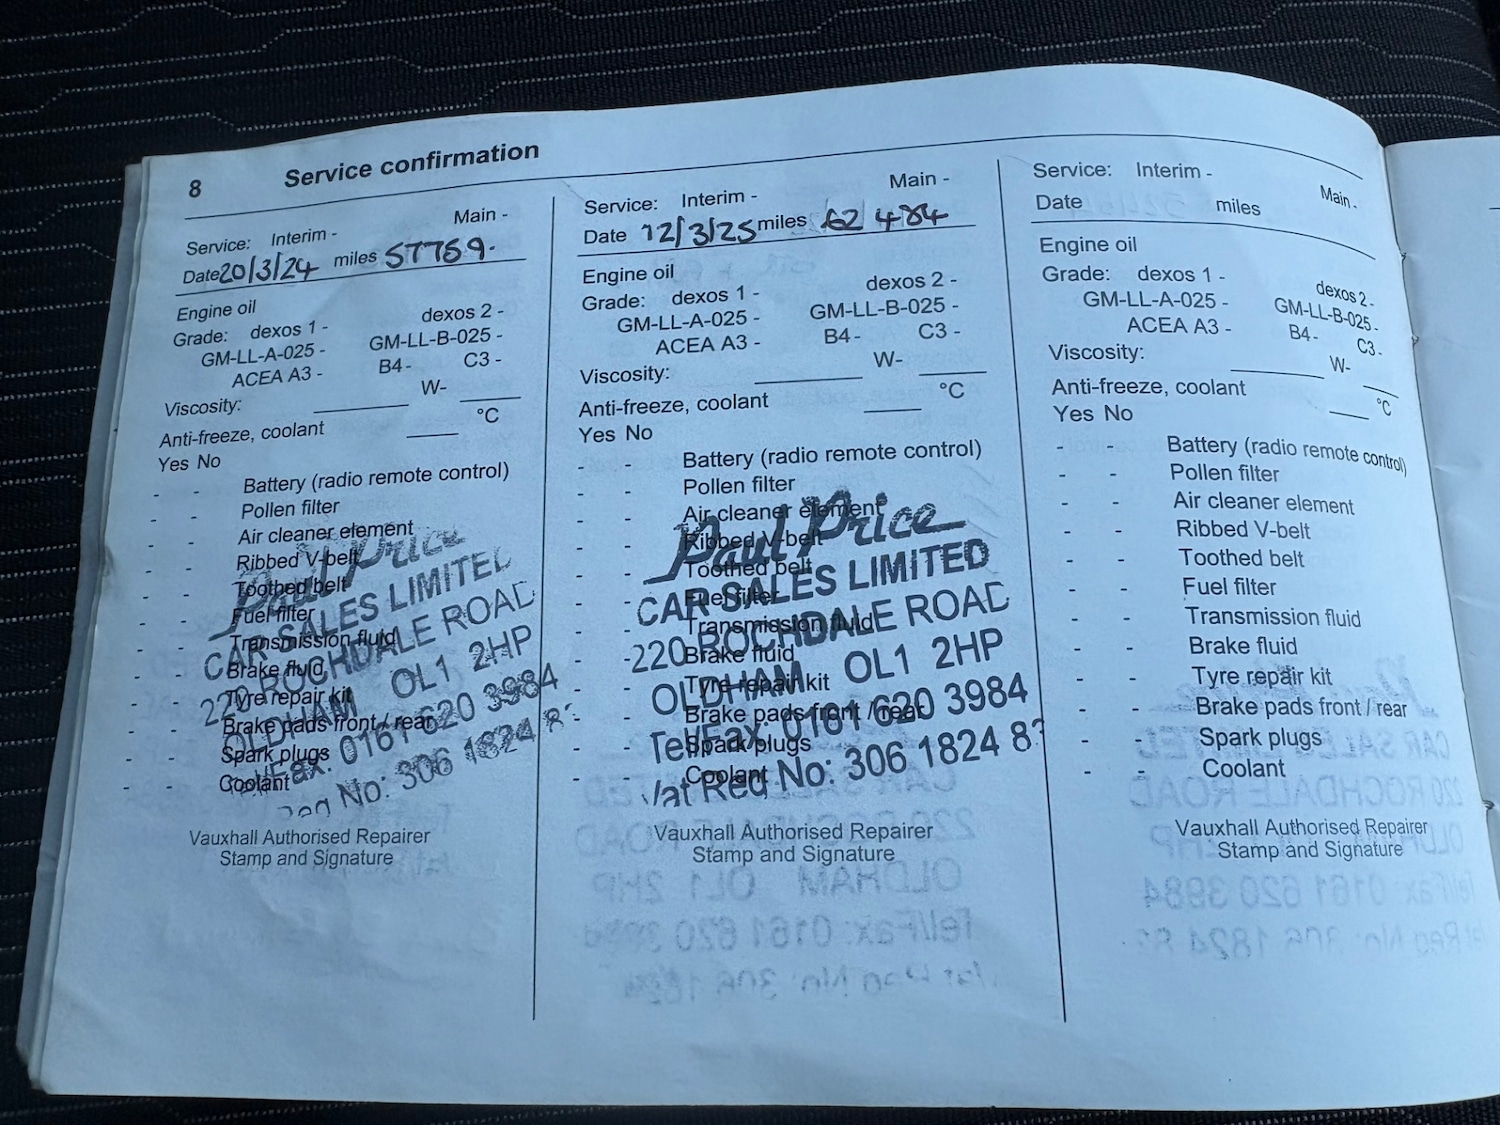 8 Service confirmation
Service: Interim - Main -
Date 20/3/24 miles 57759.
Engine oil
Grade: dexos 1 - dexos 2 -
GM-LL-A-025 - GM-LL-B-025 -
ACEA A3 - B4 - C3 -
Viscosity: W-
Anti-freeze, coolant °C
Yes No
- - Battery (radio remote control)
- - Pollen filter
- - Air cleaner element
- - Ribbed V-belt
- - Toothed belt
- - Fuel filter
- - Transmission fluid
- - Brake fluid
- - Tyre repair kit
- - Brake pads front / rear
- - Spark plugs
- - Coolant
Paul Price
CAR SALES LIMITED
220 ROCHDALE ROAD
OLDHAM OL1 2HP
Fax: 0161 620 3984
Reg No: 306 1824
Vauxhall Authorised Repairer
Stamp and Signature
Service: Interim - Main -
Date 12/3/25 miles 62 484
Engine oil
Grade: dexos 1 - dexos 2 -
GM-LL-A-025 - GM-LL-B-025 -
ACEA A3 - B4 - C3 -
Viscosity: W-
Anti-freeze, coolant °C
Yes No
- - Battery (radio remote control)
- - Pollen filter
- - Air cleaner element
- - Ribbed V-belt
- - Toothed belt
- - Fuel filter
- - Transmission fluid
- - Brake fluid
- - Tyre repair kit
- - Brake pads front / rear
- - Spark plugs
- - Coolant
Paul Price
CAR SALES LIMITED
220 ROCHDALE ROAD
OLDHAM OL1 2HP
Tel/Fax: 0161 620 3984
Vat Reg No: 306 1824
Vauxhall Authorised Repairer
Stamp and Signature
Service: Interim - Main -
Date miles
Engine oil
Grade: dexos 1 - dexos 2 -
GM-LL-A-025 - GM-LL-B-025 -
ACEA A3 - B4 - C3 -
Viscosity: W-
Anti-freeze, coolant °C
Yes No
- - Battery (radio remote control)
- - Pollen filter
- - Air cleaner element
- - Ribbed V-belt
- - Toothed belt
- - Fuel filter
- - Transmission fluid
- - Brake fluid
- - Tyre repair kit
- - Brake pads front / rear
- - Spark plugs
- - Coolant
Vauxhall Authorised Repairer
Stamp and Signature